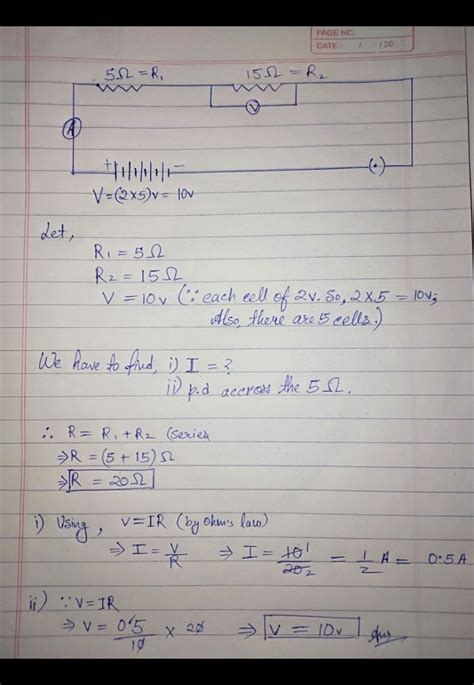 PAGE NO.
DATE: / /20
5Ω = R₁ 15Ω = R₂
V
A
+ −
(·)
V=(2×5)v = 10v
Let,
R₁ = 5Ω
R₂ = 15Ω
V = 10v (∵ each cell of 2v. So, 2×5 = 10v;
Also, there are 5 cells.)
We have to find, i) I = ?
ii) p.d accross the 5Ω.
∴ R = R₁ + R₂ (series
⇒R = (5 + 15)Ω
⇒R = 20Ω
i) Using, V=IR (by Ohm's law)
⇒ I = V/R ⇒ I = 10¹/20₂ = 1/2 A = 0.5A
ii) ∵ V=IR
⇒ V = 05/10 × 20 ⇒ V = 10v Ans